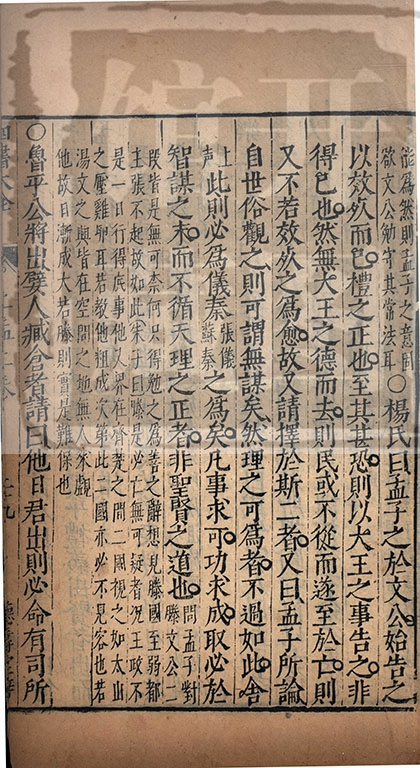 能為然則孟子之意固
欲文公勉守其常法耳○楊氏曰孟子之於文公始告之
以效死而已禮之正也至其甚恐則以大王之事告之非
得已也然無大王之德而去則民或不從而遂至於亡則
又不若效死之為愈故又請擇於斯二者又曰孟子所論
自世俗觀之則可謂無謀矣然理之可為者不過如此舍
上聲此則必為儀秦張儀蘇秦之為矣凡事求可功求成取必於
智謀之末而不循天理之正者非聖賢之道也問孟子對滕文公二
段皆是無可奈何只得勉之為善之辭想見滕國至弱都
主張不起故如此朱子曰滕是必亡無可疑者況王政不
是一日行得底事他又界在齊楚之間二國視之如太山
之壓雞卵耳若教他粗成次第此二國亦必不見容也若
湯文之興皆在空閒之地無人來覷
他故日漸成大若滕則實是難保也
○魯平公將出嬖人臧倉者請曰他日君出則必命有司所
四書大全